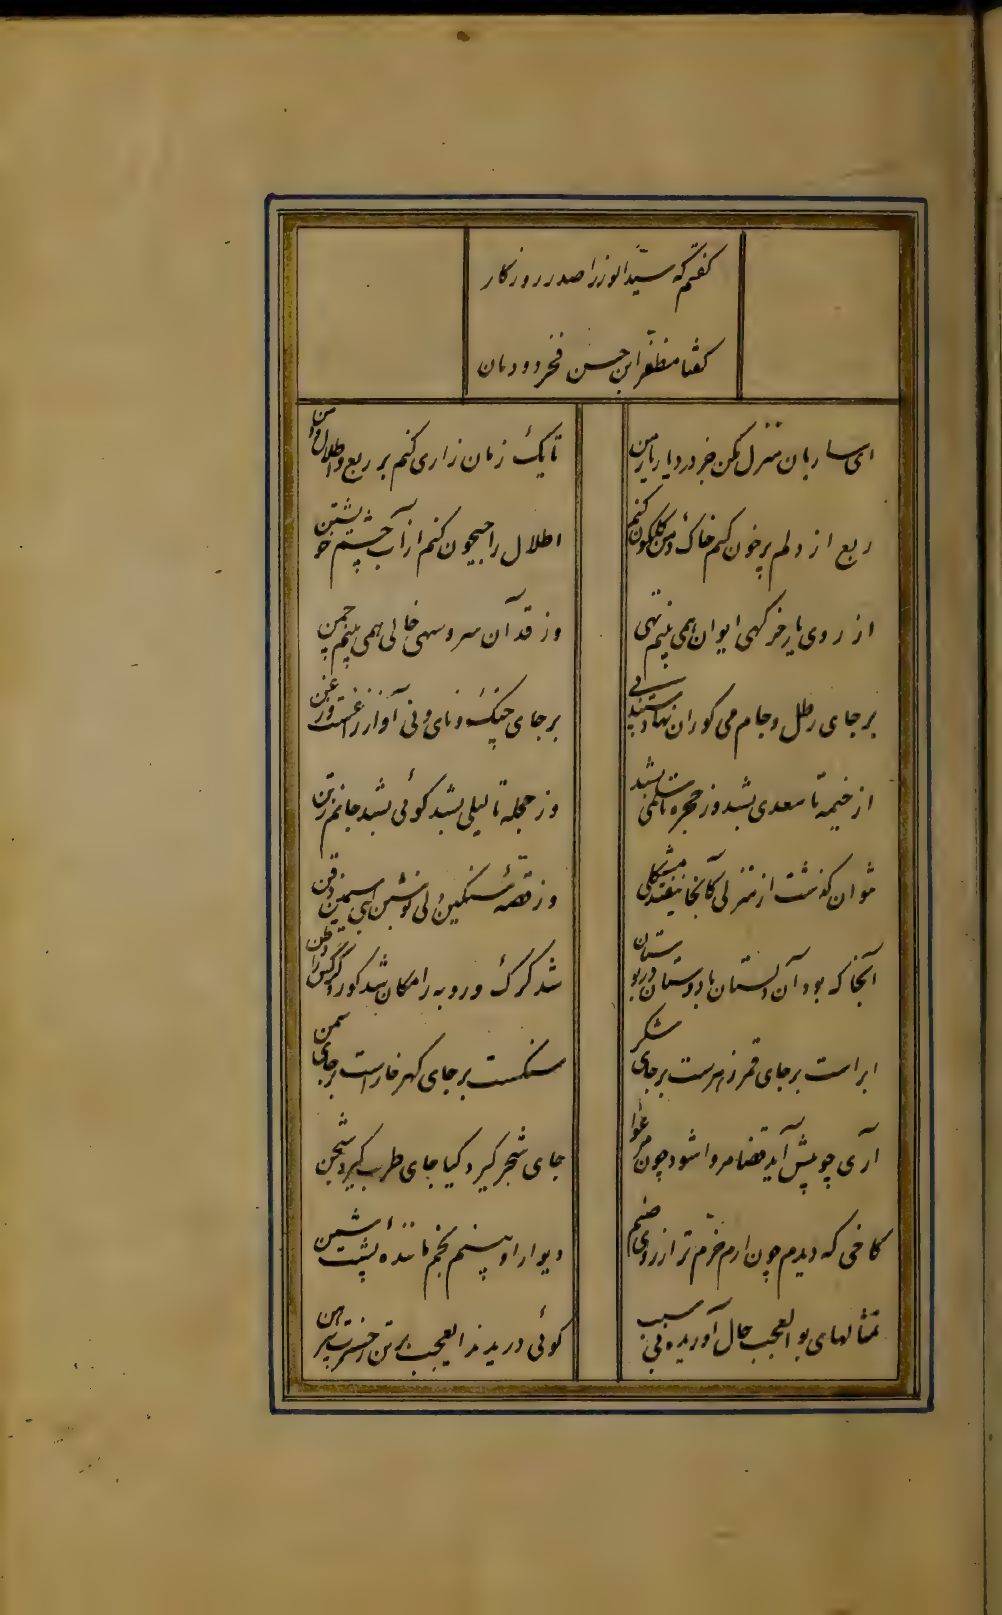 کفتم که سیّد الوزرا صدر روزکار
کفتا مظفّر ابن حسن فخر دودمان
ای ساربان منزل مکن جز در دیار یار من
تا یک زمان زاری کنم بر ربع و اطلال و دمن
ربع از دلم پرخون کنم خاک دمن کلکون کنم
اطلال را جیحون کنم از آب چشم خویشتن
از روی یار خرکهی ایوان همی بینم تهی
وز قد آن سرو سهی خالی همی بینم چمن
بر جای رطل و جام می کوران نهادستند پی
بر جای چنک و نای و نی آواز زاغست و زغن
از خیمه تا سعدی بشد وز حجره تا سلمی بشد
وز حجله تا لیلی بشد کوئی بشد جانم ز تن
نتوان کذشت از منزلی کآنجا نیفتد مشکلی
وز قصّه سنکین دلی نوشین لبی سیمین ذقن
آنجا که بود آن دلستان با دوستان در بوستان
شد کرک و روبه را مکان شد کور و کرکس را وطن
ابر است بر جای قمر زهرست بر جای شکر
سنکست بر جای کهر خار است بر جای سمن
آری چو پیش آید قضا مروا شود چون مرغوا
جای شجر کیرد کیا جای طرب کیرد شجن
کاخی که دیدم چون ارم خرّم تر از روی صنم
دیوار او بینم بخم ماننده پشت شمن
تمثالهای بوالعجب حال آوریده بی سبب
کوئی دریدند ایعجب بر تن ز حسرت پیرهن